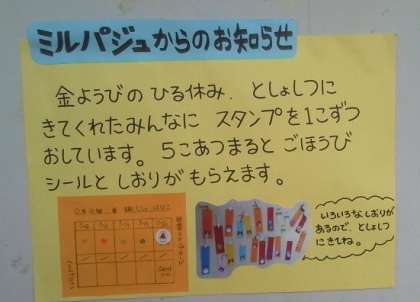 ミルパジュからのお知らせ
金ようびの ひる休み、としょしつに
きてくれたみんなに スタンプを1こずつ
おしています。5こあつまると ごほうび
シールと しおりがもらえます。
いろいろなしおりが
あるので、としょしつ
にきしね。